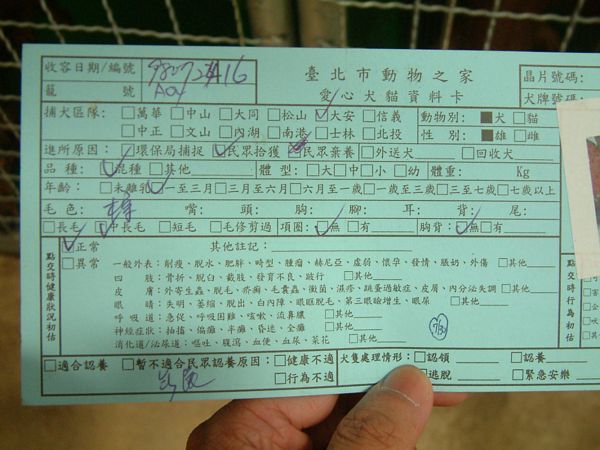 收容日期/編號
臺北市動物之家
晶片號碼:
籠 號 A04
愛心犬貓資料卡
犬牌號碼:
捕犬區隊: □萬華 □中山 □大同 □松山 ☑大安 □信義 動物別: ■犬 □貓
□中正 □文山 □內湖 □南港 □士林 □北投 性 別: ■雄 □雌
進所原因: □環保局捕捉 ☑民眾拾獲 民眾棄養 □外送犬 □回收犬
品 種: ☑混種 □其他 體 型: □大 □中 □小 □幼 體重: Kg
年齡: □未離乳 ☑一至三月 □三月至六月 □六月至一歲 □一歲至三歲 □三至七歲 □七歲以上
毛 色: 嘴: 頭: 胸: 腳: 耳: 背: 尾:
□長毛 ☑中長毛 □短毛 □毛修剪過 項圈: ☑無 □有 胸背: ☑無 □有
點交時健康狀況初估
☑正常 其他註記:
□異常 一般外表: 削瘦、脫水、肥胖、畸型、腫瘤、赫尼亞、虛弱、懷孕、發情、脹奶、外傷 □其他
四 肢: 骨折、脫臼、截肢、發育不良、跛行 □其他
皮 膚: 外寄生蟲、脫毛、疥癬、毛囊蟲、黴菌、濕疹、跳蚤過敏症、皮屑、內分泌失調 □其他
眼 睛: 失明、萎縮、脫出、白內障、眼眶脫毛、第三眼瞼增生、眼屎 □其他
呼 吸 道: 急促、呼吸困難、咳嗽、流鼻膿 □其他
神經症狀: 抽搐、偏癱、半癱、昏迷、全癱 □其他
消化道/泌尿道: 嘔吐、腹瀉、血便、血尿、菜花 □其他
點交時行為初估
□適合認養 □暫不適合民眾認養原因: □健康不適 犬隻處理情形: □認領 □安養
□行為不適 □逃脫 □緊急安樂